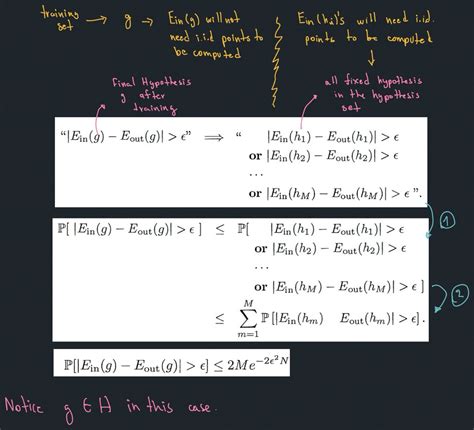 training set → g → Ein(g) will not need i.i.d points to be computed
Ein(hi)'s will need i.i.d. points to be computed
Final Hypothesis g after training
all fixed hypothesis in the hypothesis set
“|E_in(g) − E_out(g)| > ϵ” ⟹ “ |E_in(h_1) − E_out(h_1)| > ϵ
or |E_in(h_2) − E_out(h_2)| > ϵ
...
or |E_in(h_M) − E_out(h_M)| > ϵ ”.
①
ℙ[ |E_in(g) − E_out(g)| > ϵ ] ≤ ℙ[ |E_in(h_1) − E_out(h_1)| > ϵ
or |E_in(h_2) − E_out(h_2)| > ϵ
...
or |E_in(h_M) − E_out(h_M)| > ϵ ]
②
≤ ∑_{m=1}^{M} ℙ [|E_in(h_m) E_out(h_m)| > ϵ] .
ℙ[|E_in(g) − E_out(g)| > ϵ] ≤ 2Me^{−2ϵ²N}
Notice g ∈ H in this case.